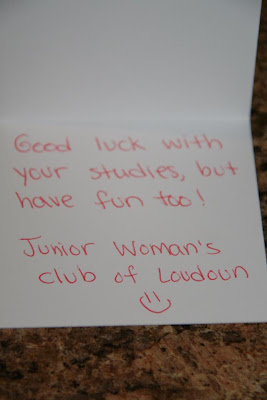 Good luck with
your studies, but
have fun too!
Junior Woman's
club of Loudoun